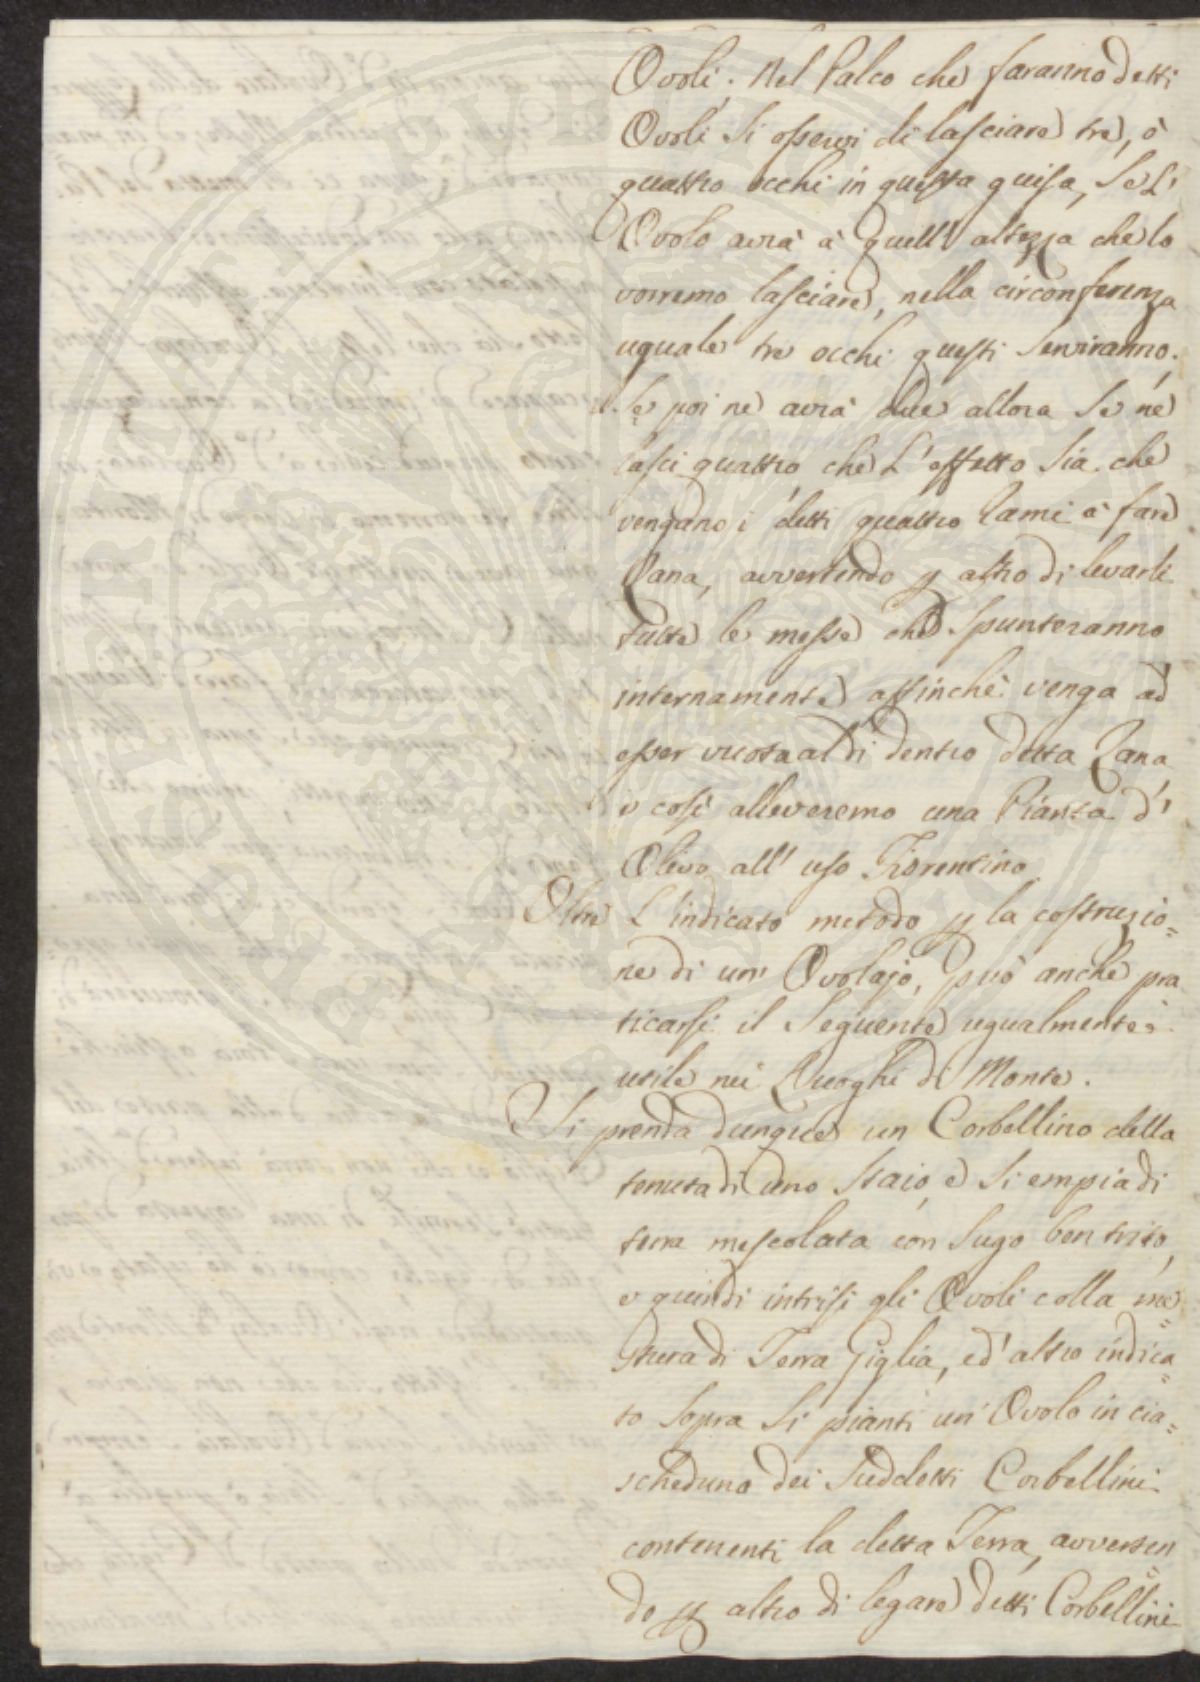 Ovoli. Nel Palco che faranno detti
Ovoli si osservi di lasciare tre, ò
quattro occhi in questa guisa, Se L'
Ovolo avrà à quell' altezza che lo
vorremo lasciare, nella circonferenza
uguale tre occhi questi serviranno.
Se poi ne avrà due allora Se né
lasci quattro, che L' effetto Sia che
vengano i detti quattro Rami à fare
Zana, avvertendo p altro di levarli
tutte le messe che Spunteranno
internamente affinchè venga ad
esser vuota al di dentro detta Zana
e così alleveremo una Pianta d'
Olivo all' uso Fiorentino.
Oltre L'indicato metodo p la costruzio=
ne di un' Ovolajo, può anche pra
ticarsi il Seguente ugualmente
utile nei Luoghi di Monte.
Si prenda dunque un Corbellino della
tenuta di uno Staio, e Si empia di
terra mescolata con Sugo ben trito,
e quindi intrisi gli Ovoli colla me=
stura di Terra Giglia, ed' altro indica=
to Sopra Si pianti un' Ovolo in cia=
scheduno dei Suddetti Corbellini
contenenti la detta Terra, avverten
do p altro di legare detti Corbellini